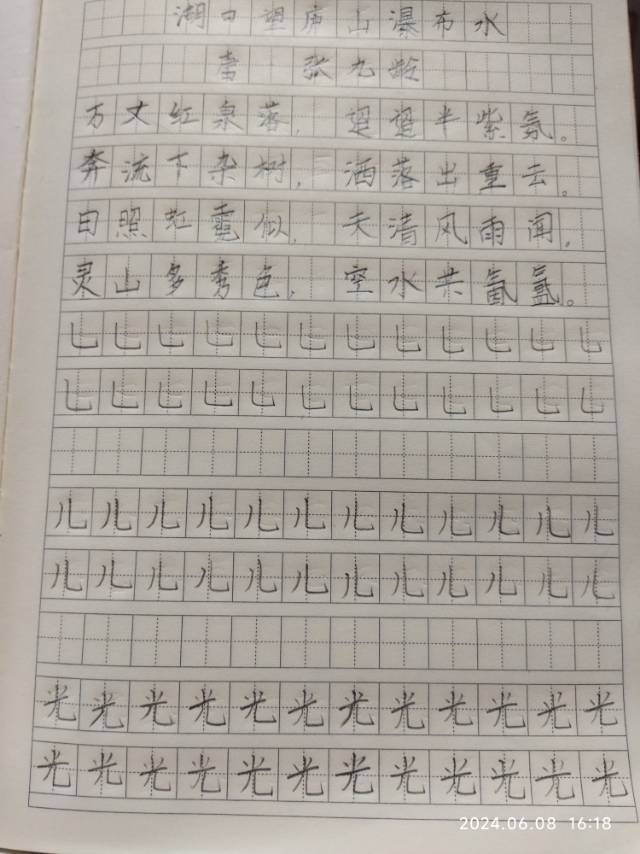 湖口望庙山瀑布水
唐 张九龄
万丈红泉落,迢迢半紫氛。
奔流下杂树,洒落出重云。
日照虹霓似,天清风雨闻,
灵山多秀色,空水共氤氲。
乚乚乚乚乚乚乚乚乚乚乚乚
乚乚乚乚乚乚乚乚乚乚乚乚
儿儿儿儿儿儿儿儿儿儿儿儿
儿儿儿儿儿儿儿儿儿儿儿儿
光光光光光光光光光光光光
光光光光光光光光光光光光
2024.06.08 16:18